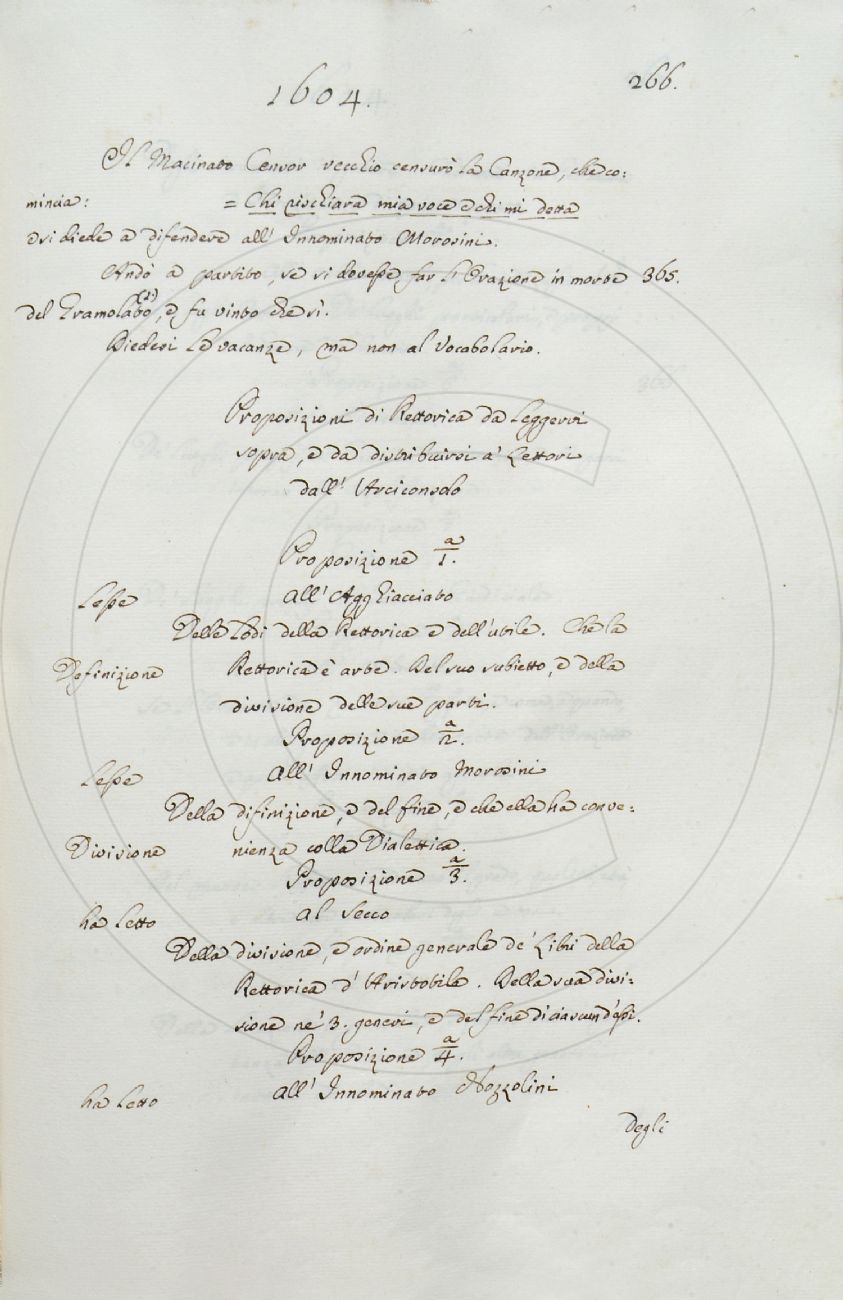 1604.
266.
Il Macinato Censor vecchio censurò la Canzone, che co:
mincia: = Chi rischiara mia voce e chi mi detta
e si diede a difendere all' Innominato Morosini.
Andò a partito, se si dovesse far l'Orazione in morte 365.
del Gramolato, e fu vinto che sì.
Diedesi le vacanze, ma non al Vocabolario.
Proposizioni di Rettorica da leggervi
sopra, e da distribuirsi a' Lettori
dall' Arciconsolo
Proposizione 1.a
Lesse all' Agghiacciato
Delle lodi della Rettorica e dell'utile. Che la
Definizione Rettorica è arte. Del suo subietto, e della
divisione delle sue parti.
Proposizione 2.a
Lesse all' Innominato Morosini
Della difinizione, e del fine, e che ella ha conve:
Divisione nienza colla Dialettica.
Proposizione 3.a
ha letto al Secco
Della divisione, e ordine generale de' Libri della
Rettorica d'Aristotile. Della sua divi:
sione ne' 3. generi, e del fine di ciascun d'essi.
Proposizione 4.a
ha letto all' Innominato Nozzolini
degli